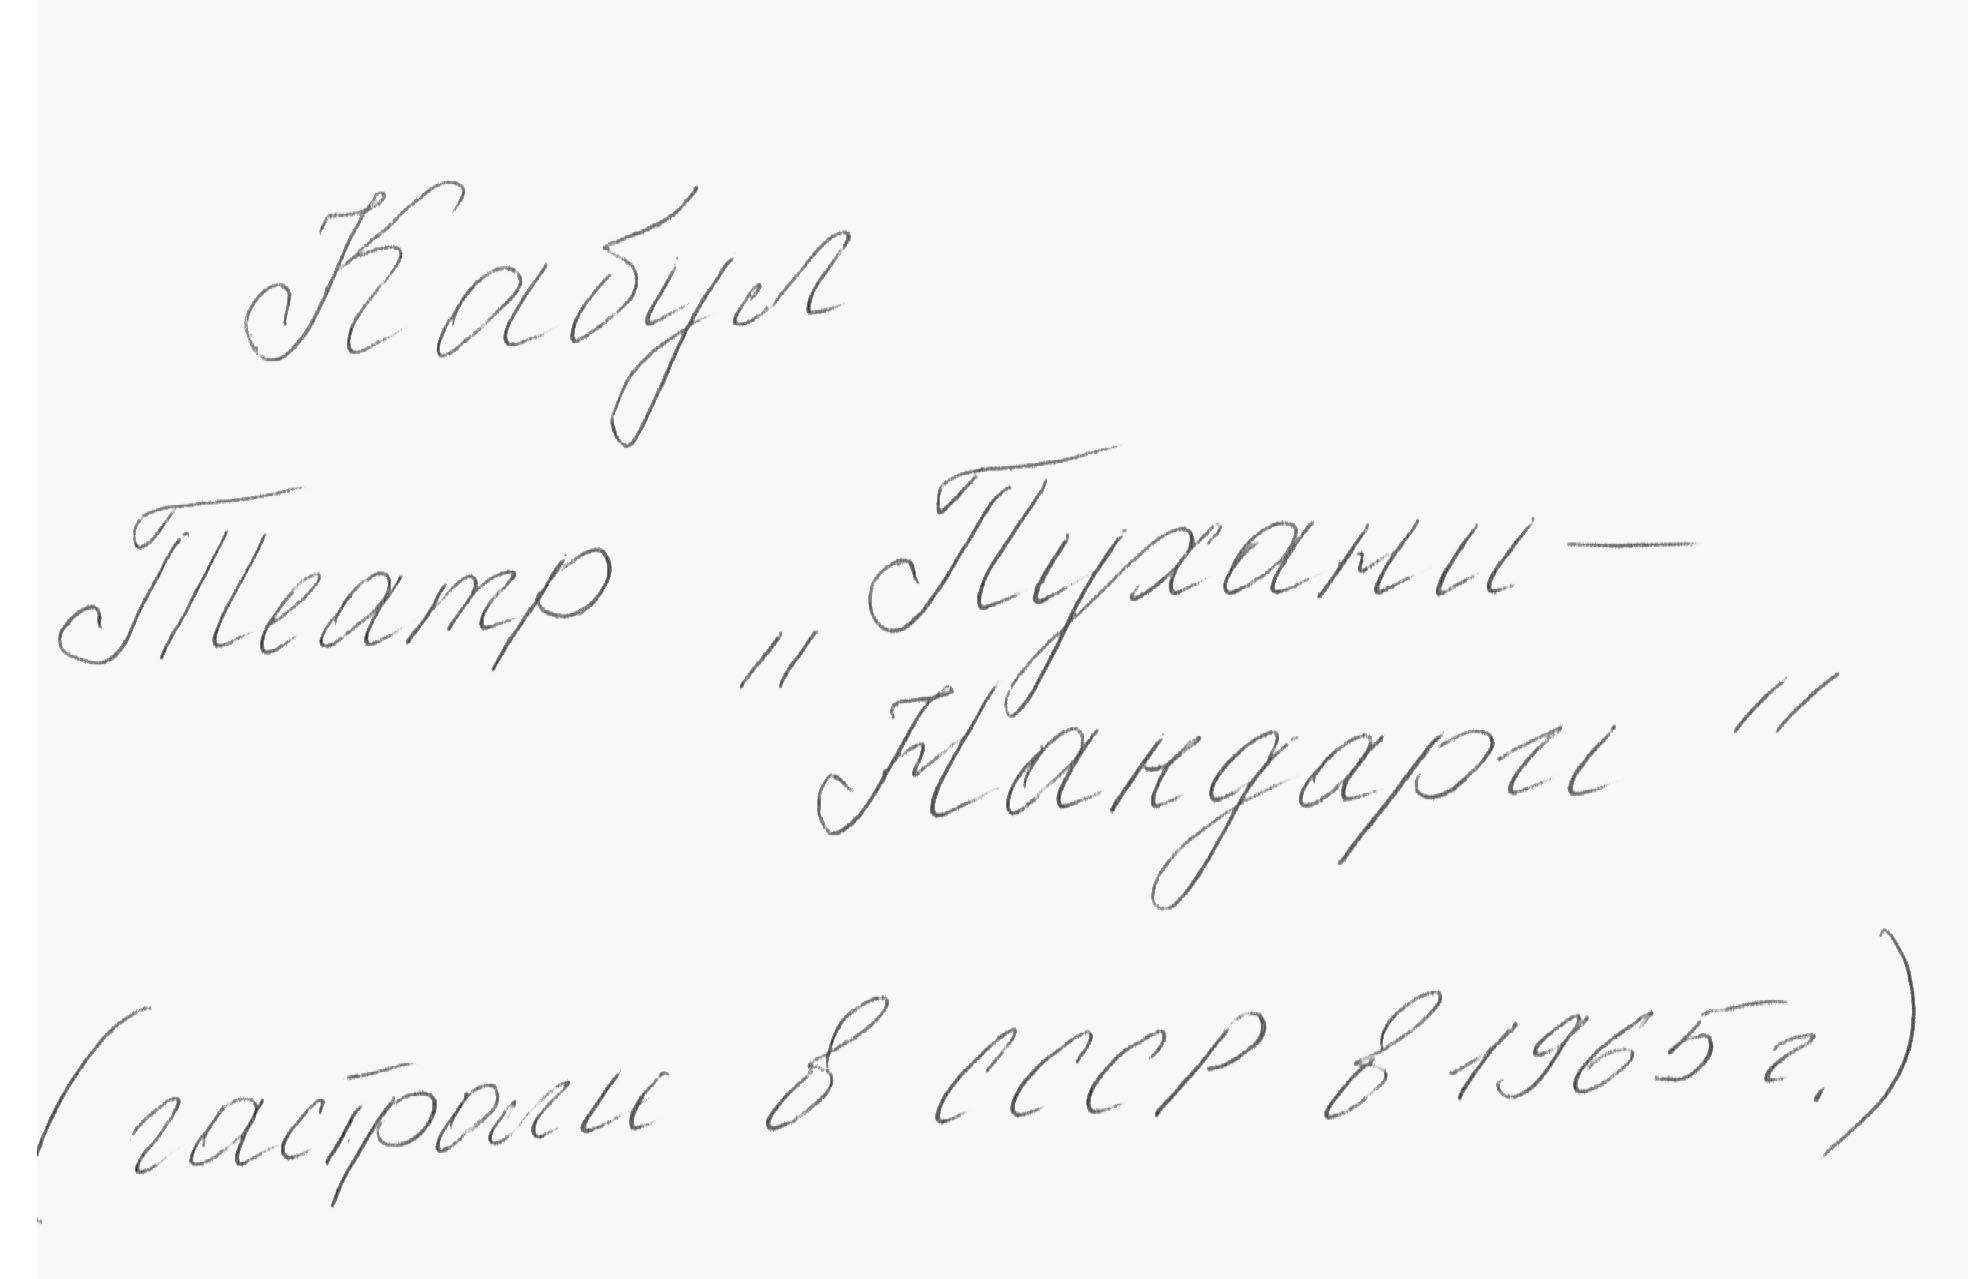 Кабул
Театр „Пухани-
Нандари"
(гастроли в СССР в 1965 г.)